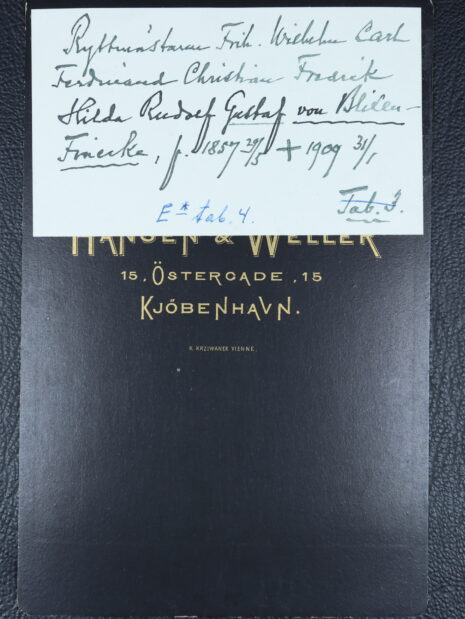 Ryttmästaren Frih. Wilhelm Carl
Ferdinand Christian Fredrik
Hilda Rudolf Gustaf von Blixen-
Finecke, f. 1857 29/5 + 1909 31/1
Tab. 3.
E* tab. 4.
HANSEN & WELLER
15, ÖSTERGADE, 15
KJÖBENHAVN.
K. KRZIWANEK VIENNE.